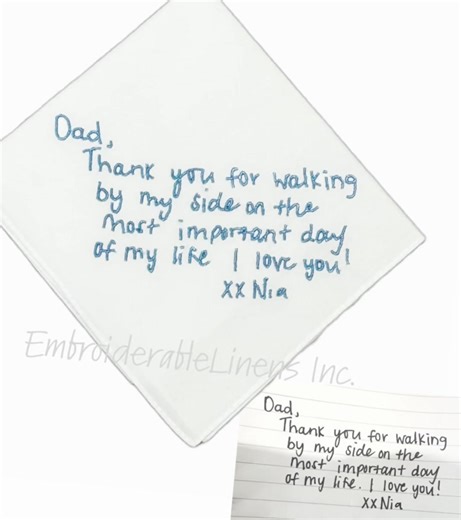 Dad,
Thank you for walking
by my side on the
most important day
of my life I love you!
xx Nia
EmbroiderableLinens Inc.
Dad,
Thank you for walking
by my side on the
most important day
of my life. I love you!
xx Nia